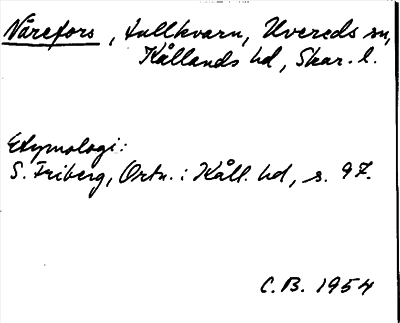 Nårefors, tullkvarn, Uvereds sn,
Kållands hd, Skar. l.
Etymologi:
S. Friberg, Ortn. i Kåll. hd, s. 97.
C.B. 1954